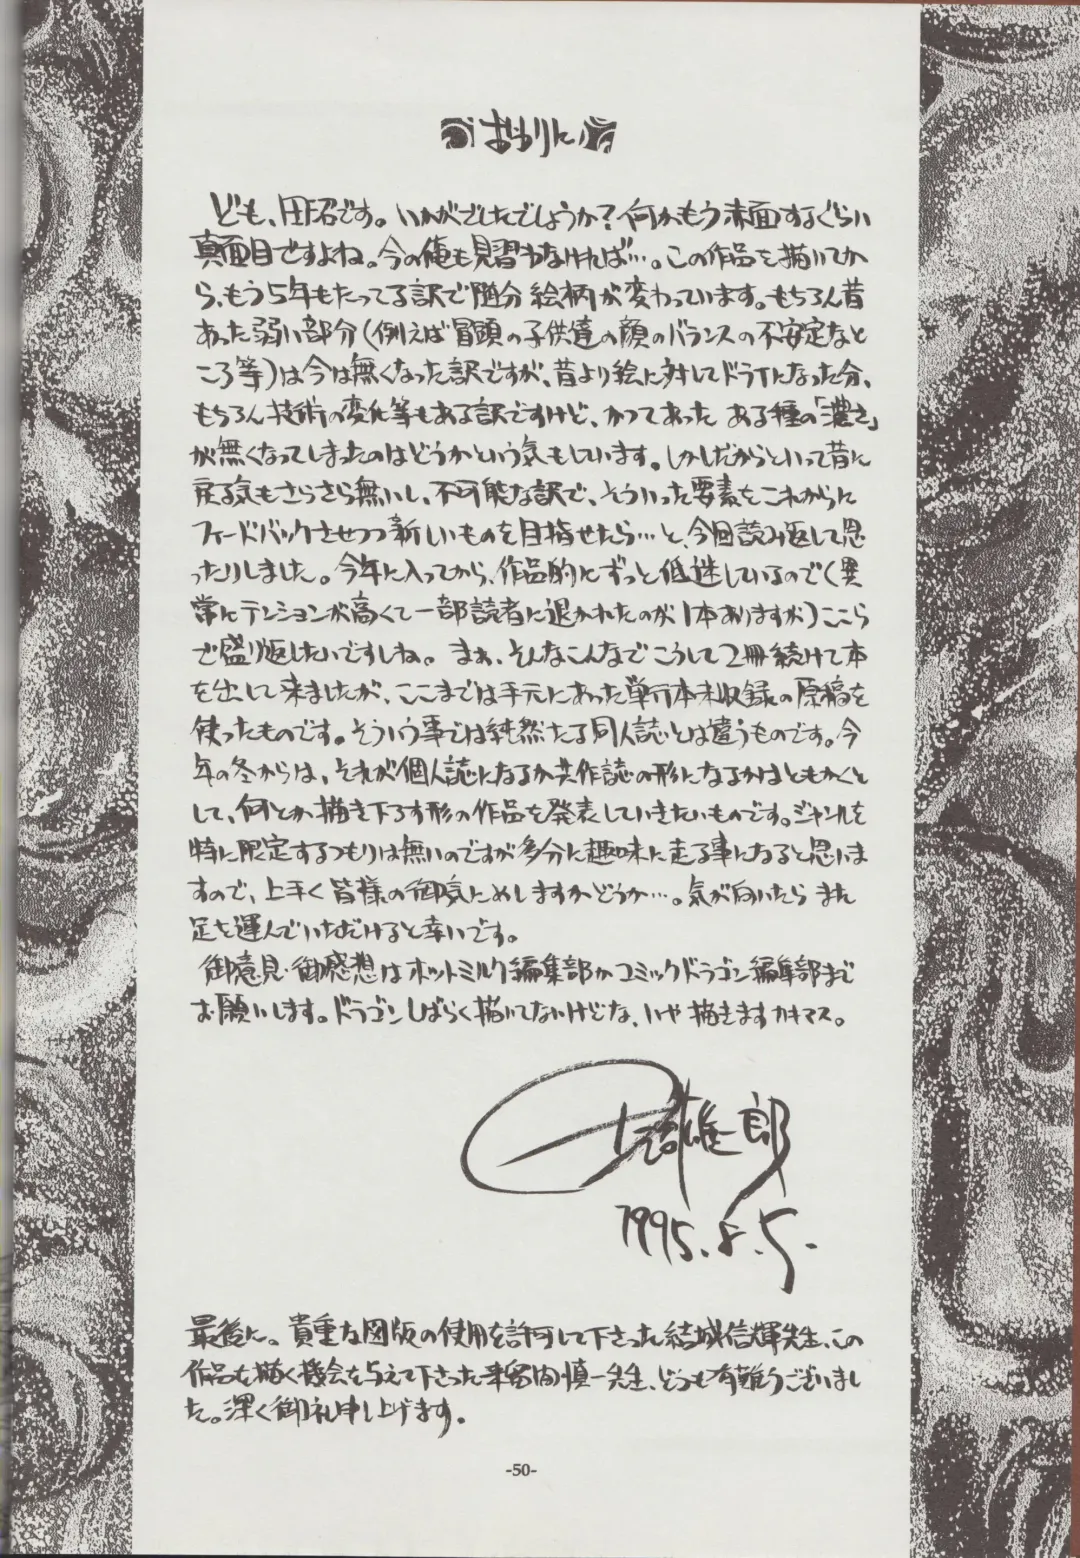 おわりに
ども、田沼です。いかがでしたでしょうか?何かもう赤面するぐらい
真面目ですよね。今の俺も見習わなければ…。この作品を描いてか
ら、もう5年もたってる訳で随分絵柄が変わっています。もちろん昔
あった弱い部分(例えば冒頭の子供達の顔のバランスの不安定なと
ころ等)は今は無くなった訳ですが、昔より絵に対してドライになった分、
もちろん技術の変化等もある訳ですけど、かつてあった ある種の「濃さ」
が無くなってしまったのはどうかという気もしています。しかしだからといって昔に
戻る気もさらさら無いし、不可能な訳で、そういった要素をこれからに
フィードバックさせつつ新しいものを目指せたら…と、今回読み返して思
ったりしました。今年に入ってから、作品的にずっと低迷しているので(異
常にテンションが高くて一部読者に退かれたのが1本ありますが)ここら
で盛り返したいですしね。まぁ、そんなこんなでこうして2冊続けて本
を出して来ましたが、ここまでは手元にあった単行本未収録の原稿を
使ったものです。そういう事では純然たる同人誌とは違うものです。今
年の冬からは、それが個人誌になるか共作誌の形になるかはともかくと
して、何とか描き下ろす形の作品を発表していきたいものです。ジャンルを
特に限定するつもりは無いのですが多分に趣味に走る事になると思いま
すので、上手く皆様の御気にめしますかどうか…。気が向いたら また
足を運んでいただけると幸いです。
御意見・御感想はホットミルク編集部かコミックドラゴン編集部まで
お願いします。ドラゴンしばらく描いてないけどな、いや描きますカキマス。
田沼雄一郎
1995.8.5.
最後に。貴重な図版の使用を許可して下さった結城信輝先生、この
作品を描く機会を与えて下さった来留間慎一先生、どうも有難うございまし
た。深く御礼申し上げます。
-50-